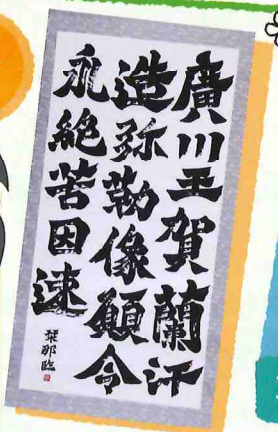 廣川王賀蘭汗
造弥勒像願令
永絶苦因速
那臨